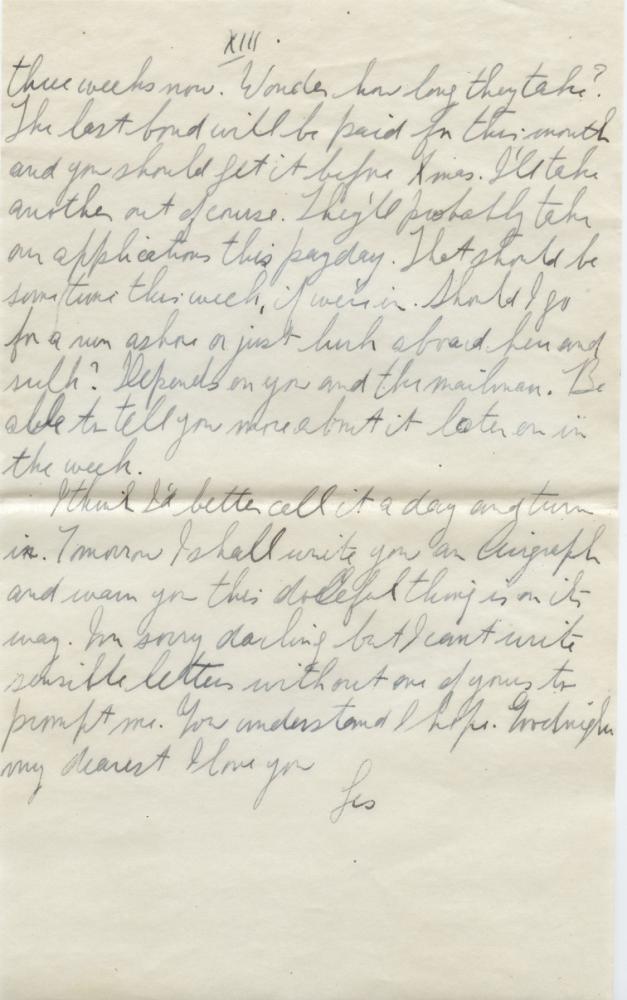 XIII.
three weeks now. Wonder how long they take?
The last bond will be paid for this month
and you should get it before Xmas. I'll take
another out of course. They'll probably take
our applications this payday. That should be
sometime this week, if we're in. Should I go
for a run ashore or just lurk aboard here and
sulk? Depends on you and the mailman. Be
able to tell you more about it later on in
the week.
I think I'd better call it a day and turn
in. Tomorrow I shall write you an Airgraph
and warn you this doleful thing is on its
way. I'm sorry darling but I can't write
sensible letters without one of yours to
prompt me. You understand I hope. Goodnight
my dearest I love you
Les